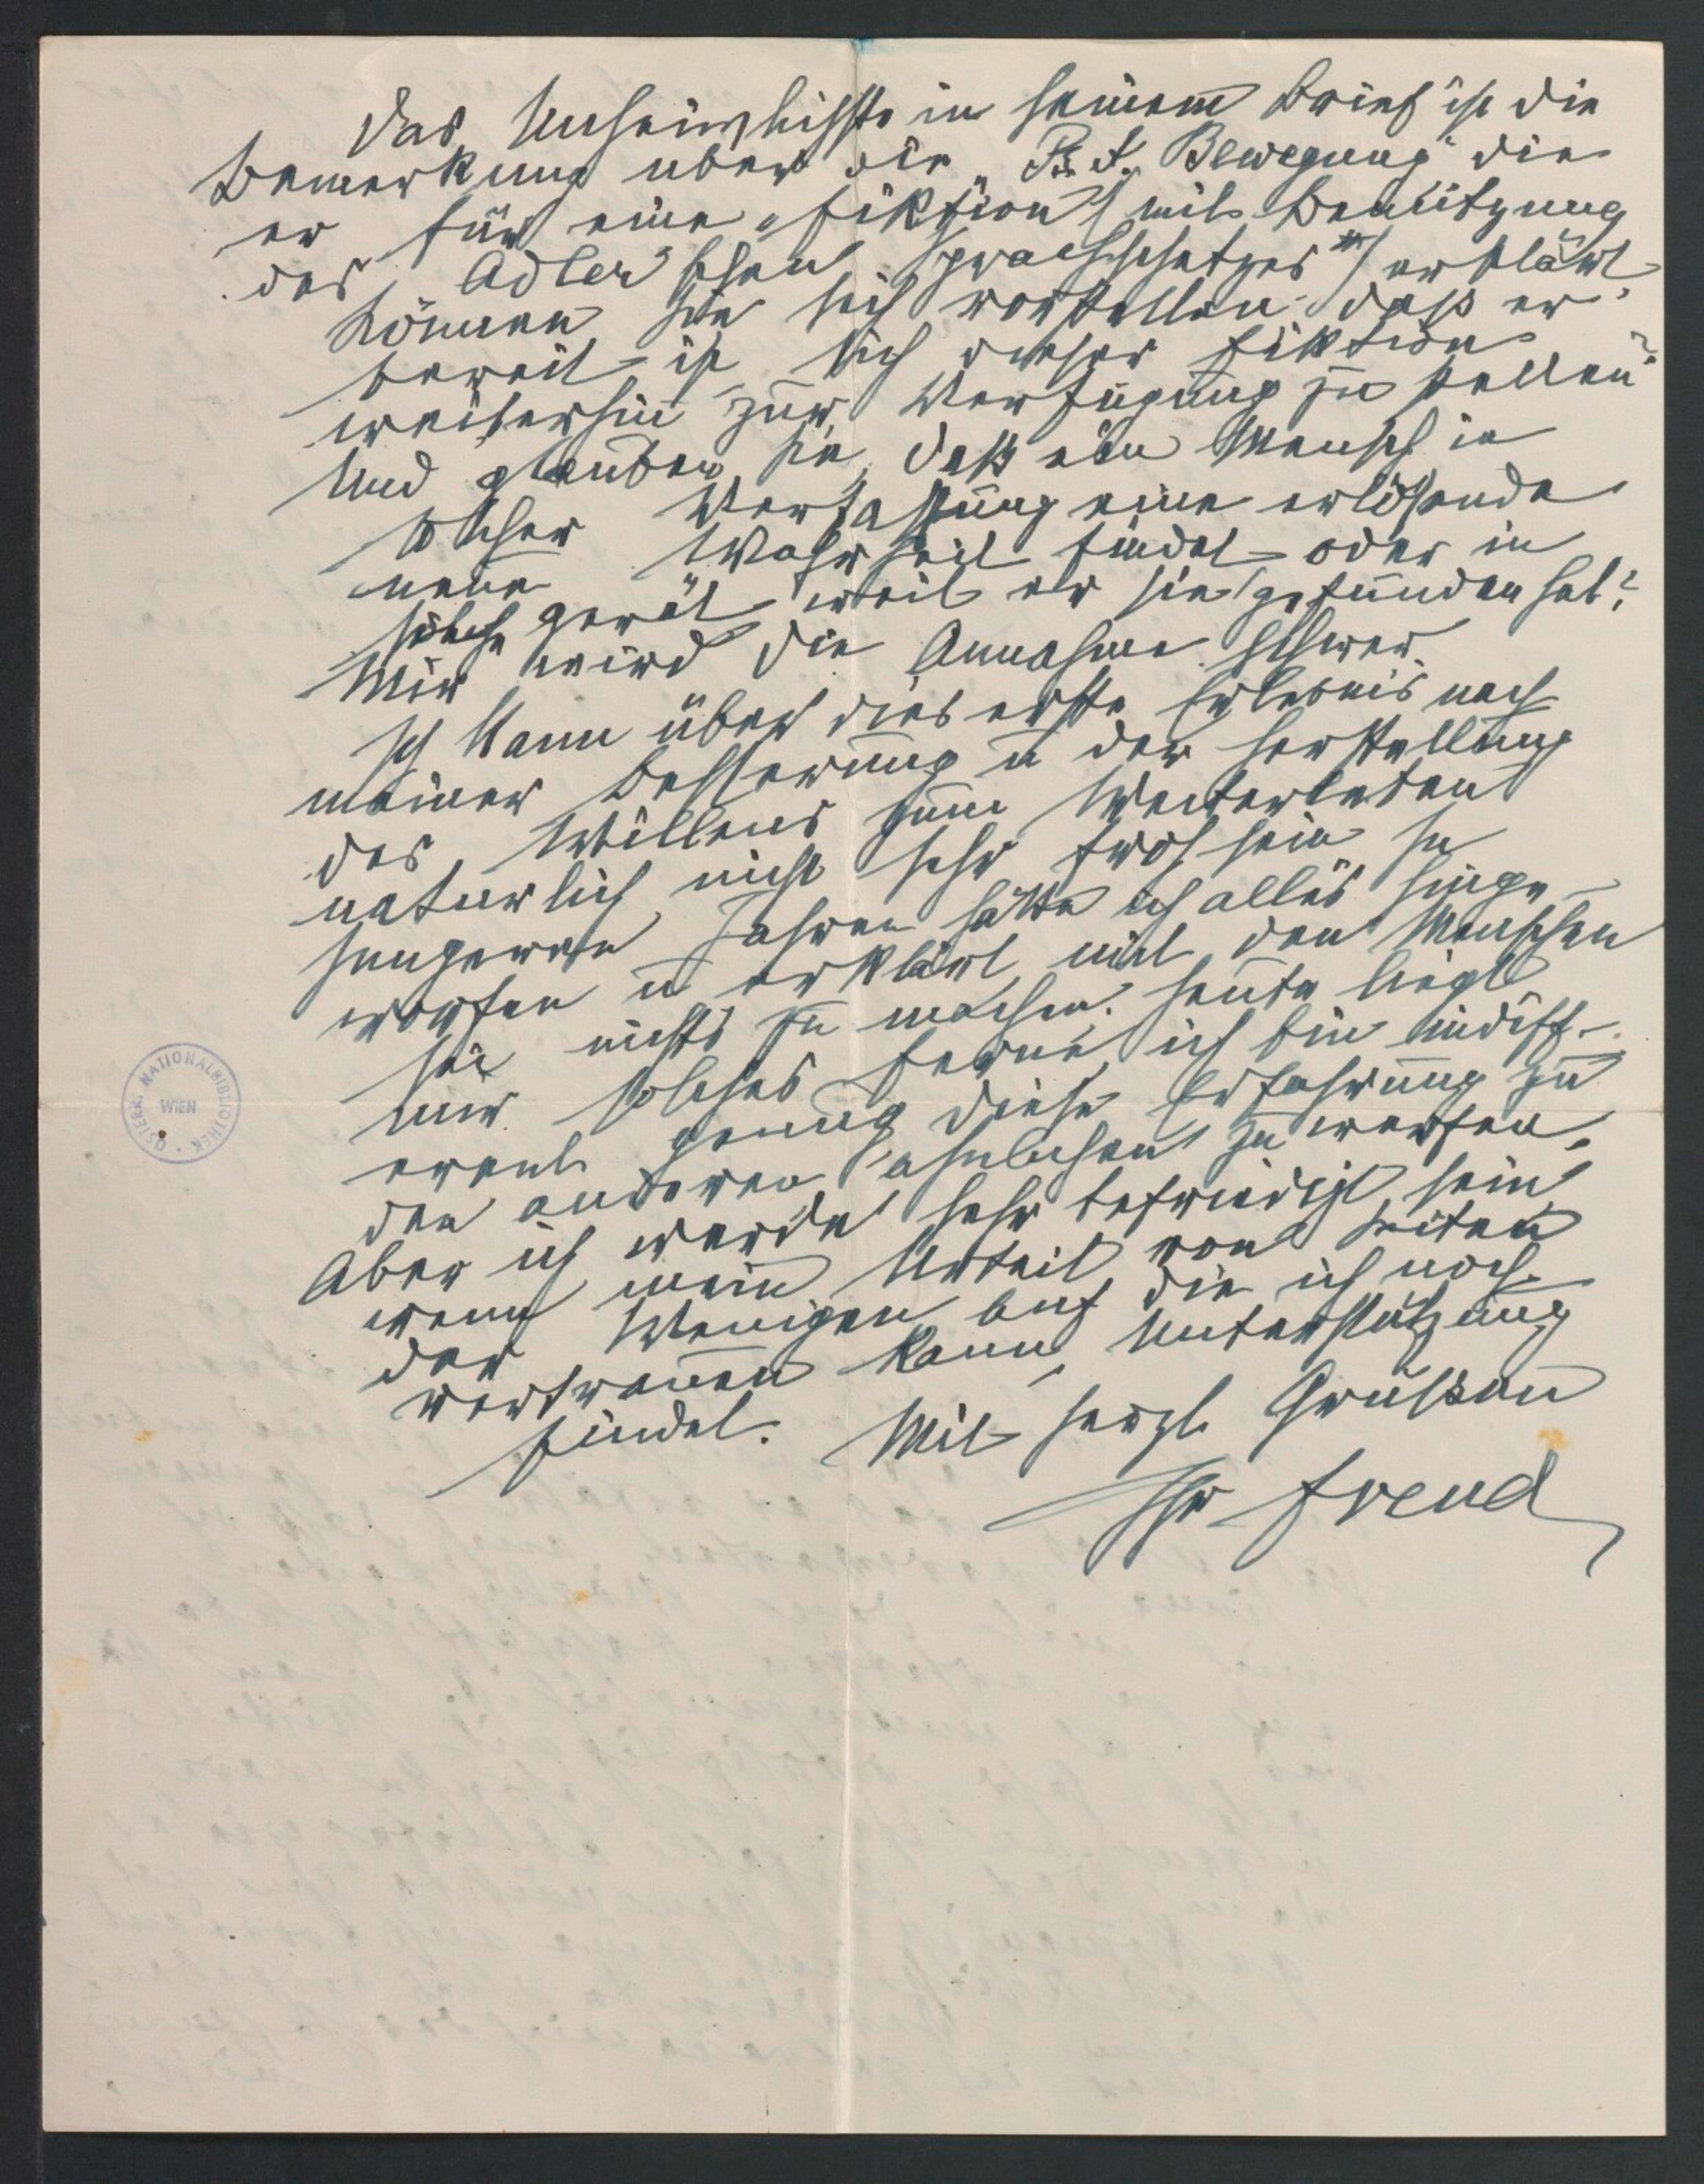 Das Unheimlichste in seinem Brief ist die
Bemerkung über die „Ps. A. Bewegung" die
er für eine „Fiktion" (mit Benützung
des Adler'schen Sprachschatzes *) erklärt.
Können Sie sich vorstellen daß er
bereit ist sich dieser Fiktion
weiterhin zur Verfügung zu stellen?
Und glauben Sie, daß ein Mensch in
solcher Verfassung eine erlösende
neue Wahrheit findet oder in
solche gerät weil er sie gefunden hat?
Mir wird die Annahme schwer.
Ich kann über dies erste Erlebnis nach
meiner Besserung u der Herstellung
des Willens zum Weiterleben
natürlich nicht sehr froh sein. In
jungeren Jahren hätte ich alles hinge-
worfen u erklärt mit den Menschen
sei nichts zu machen. Heute liegt
mir solches ferne, ich bin indiff-
erent genug diese Erfahrung zu
den anderen ähnlichen zu werfen.
Aber ich werde sehr befriedigt sein
wenn mein Urteil von Seiten
der Wenigen auf die ich noch
vertrauen kann, Unterstützung
findet. Mit herzl. Grüßen
Ihr Freud
ÖSTERR. NATIONALBIBLIOTHEK
WIEN